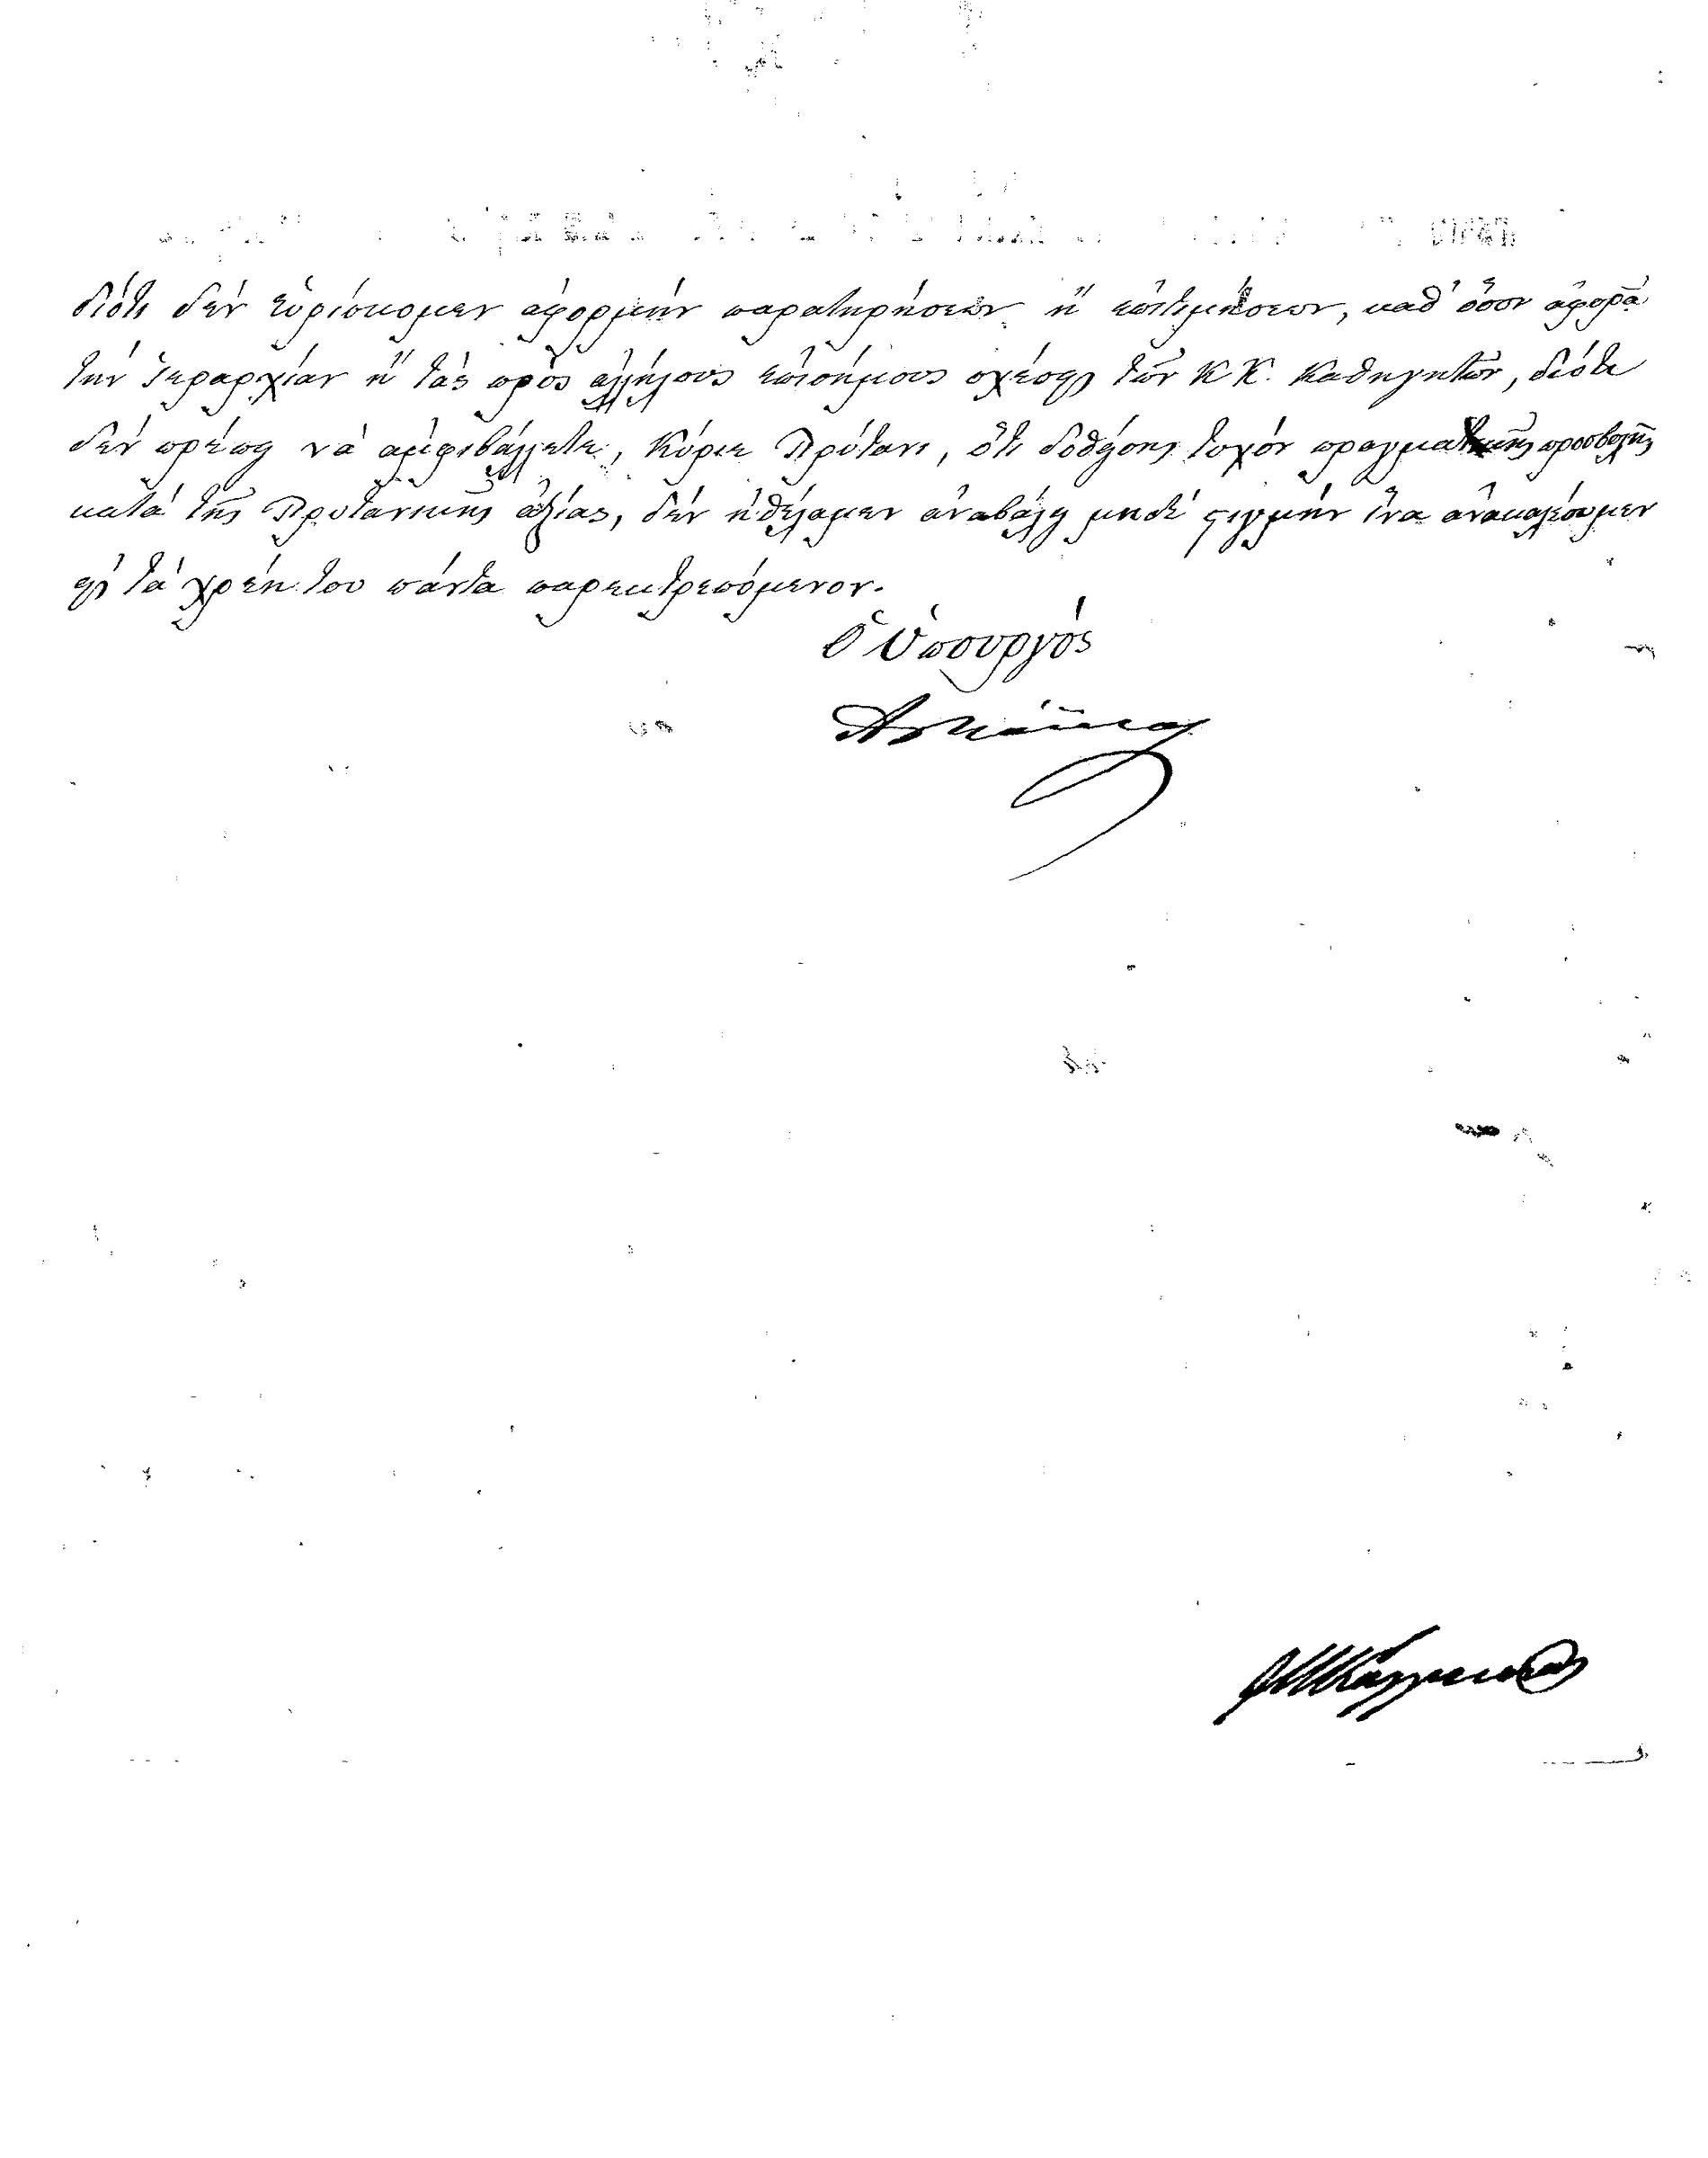 διότι δὲν εὑρίσκομεν ἀφορμὴν παρατηρήσεων ἢ ἐπιτιμήσεων, καθ' ὅσον ἀφορᾷ
τὴν ἱεραρχίαν ἢ τὰς πρὸς ἀλλήλους ἐπισήμους σχέσεις τῶν Κ Κ. Καθηγητῶν, διότι
δὲν πρέπει νὰ ἀμφιβάλλετε, Κύριε Πρύτανι, ὅτι δοθείσης τυχὸν πραγματικῆς προσβολῆς
κατὰ τῆς Πρυτανικῆς ἀξίας, δὲν ἠθέλαμεν ἀναβάλει μηδὲ στιγμὴν ἵνα ἀνακαλέσωμεν
εἰς τὰ χρέη του πάντα παρεκτρεπόμενον.
Ὁ Ὑπουργός